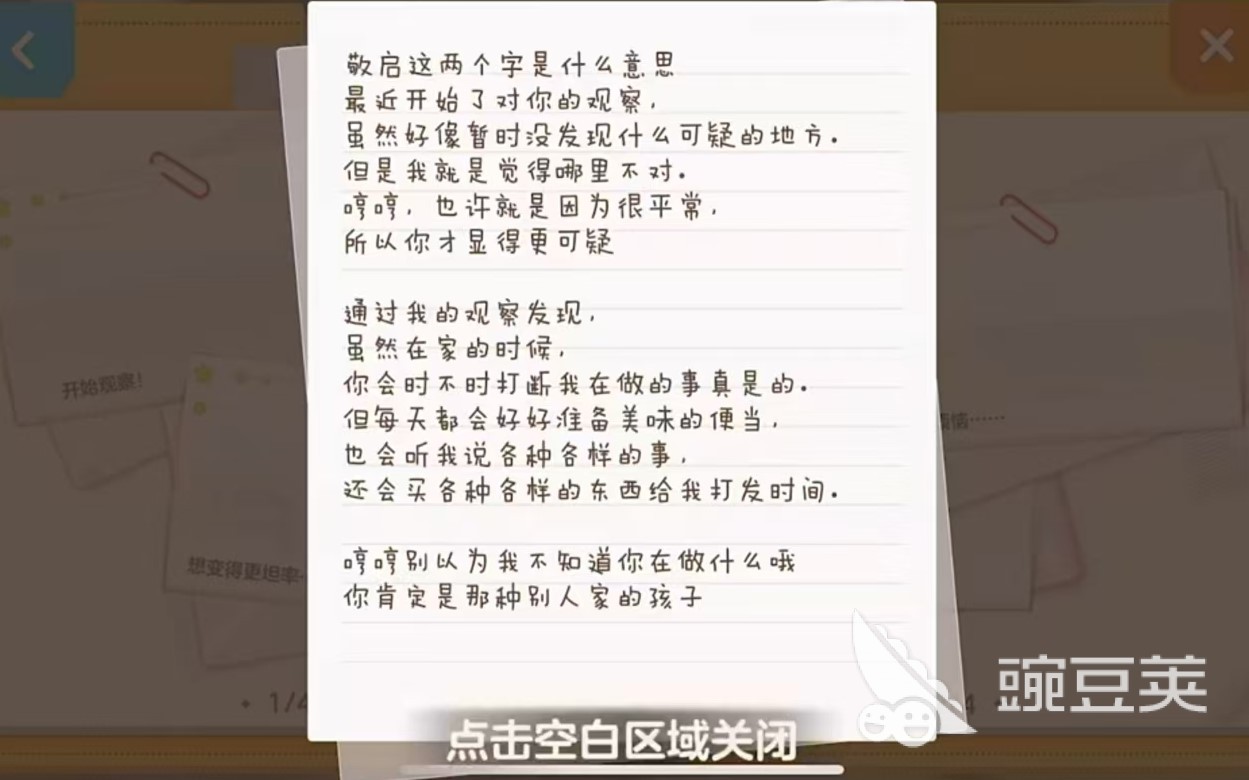 敬启这两个字是什么意思
最近开始了对你的观察，
虽然好像暂时没发现什么可疑的地方．
但是我就是觉得哪里不对．
哼哼，也许就是因为很平常，
所以你才显得更可疑
通过我的观察发现，
虽然在家的时候，
你会时不时打断我在做的事真是的．
但每天都会好好准备美味的便当，
也会听我说各种各样的事，
还会买各种各样的东西给我打发时间．
哼哼别以为我不知道你在做什么哦
你肯定是那种别人家的孩子
开始观察！
想变得更坦率
恼……
1/4
4
豌豆荚
点击空白区域关闭